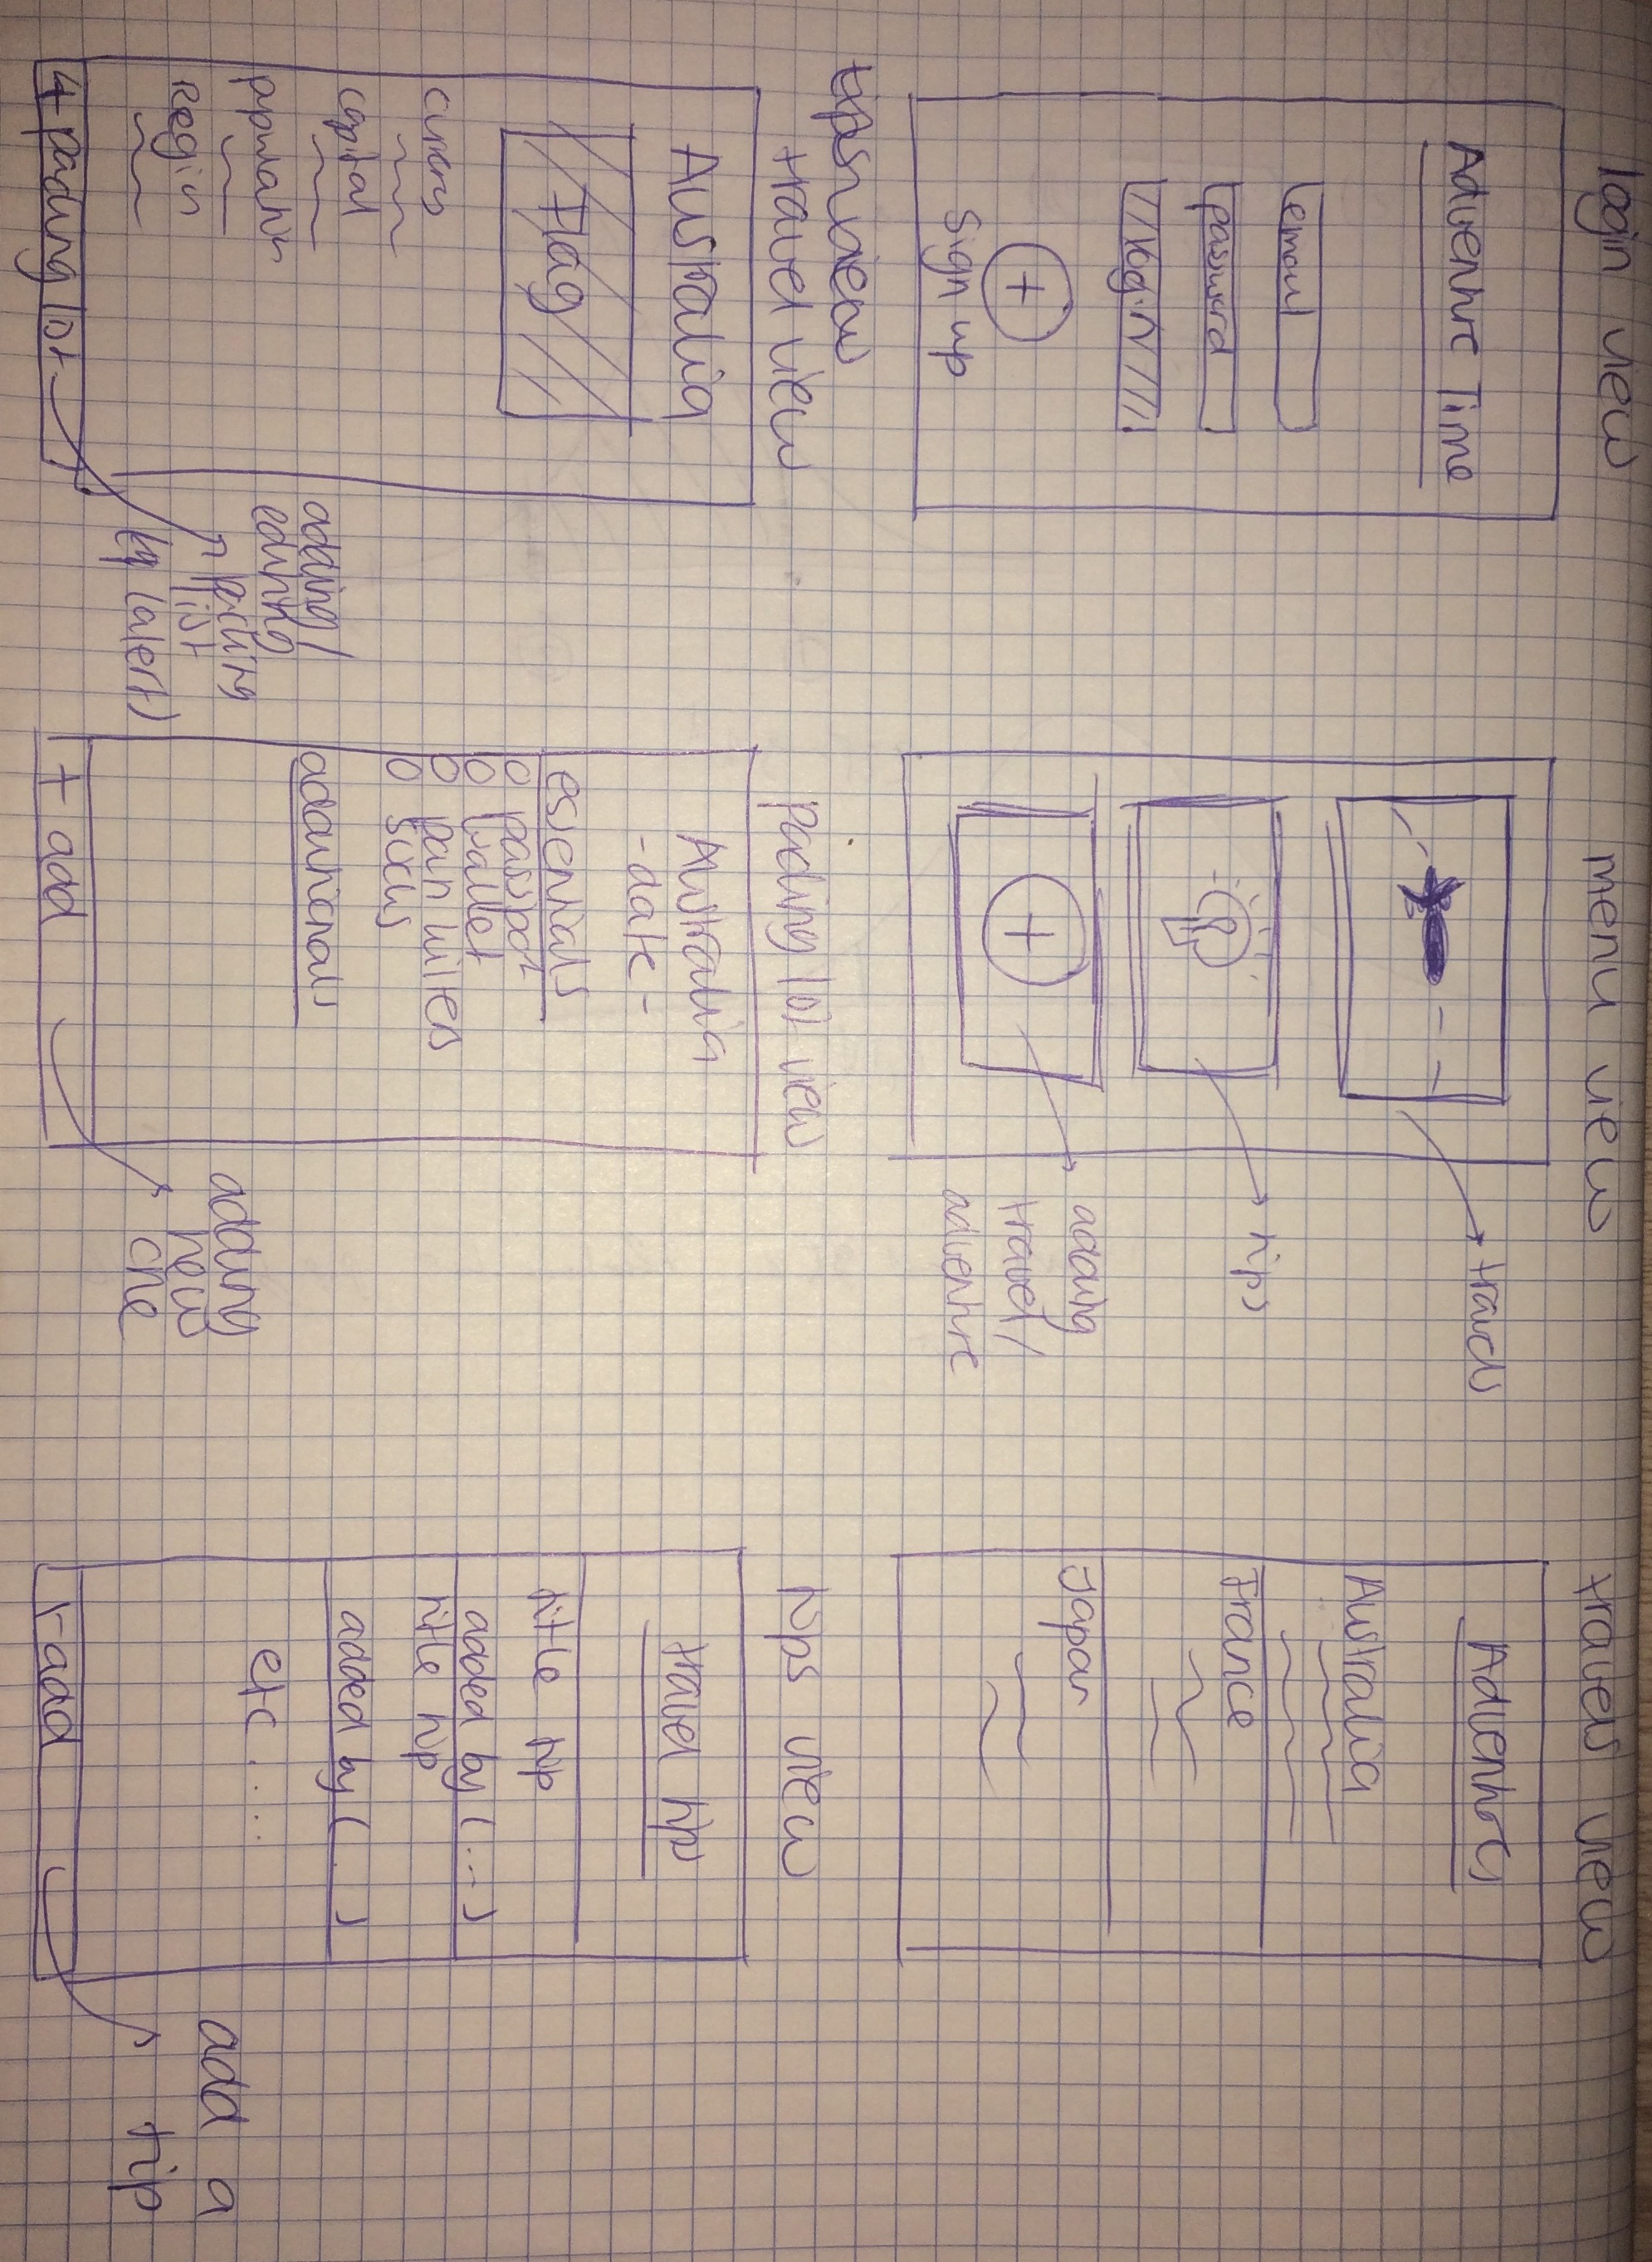 login view
Adventure Time
email
password
login
+
sign up
menu view
travels
tips
+
adding
travel/
adventure
travels view
Adventures
Australia
France
Japan
travel view
Australia
Flag
capital
population
Region
+ packing list
adding/
editing
packing
list
(alert)
Packing list view
Australia
-date-
essentials
passport
wallet
pain killers
socks
additionals
+ add
adding
new
one
tips view
travel tips
title tip
added by (...)
title tip
added by (...)
etc.....
+add
add a
tip